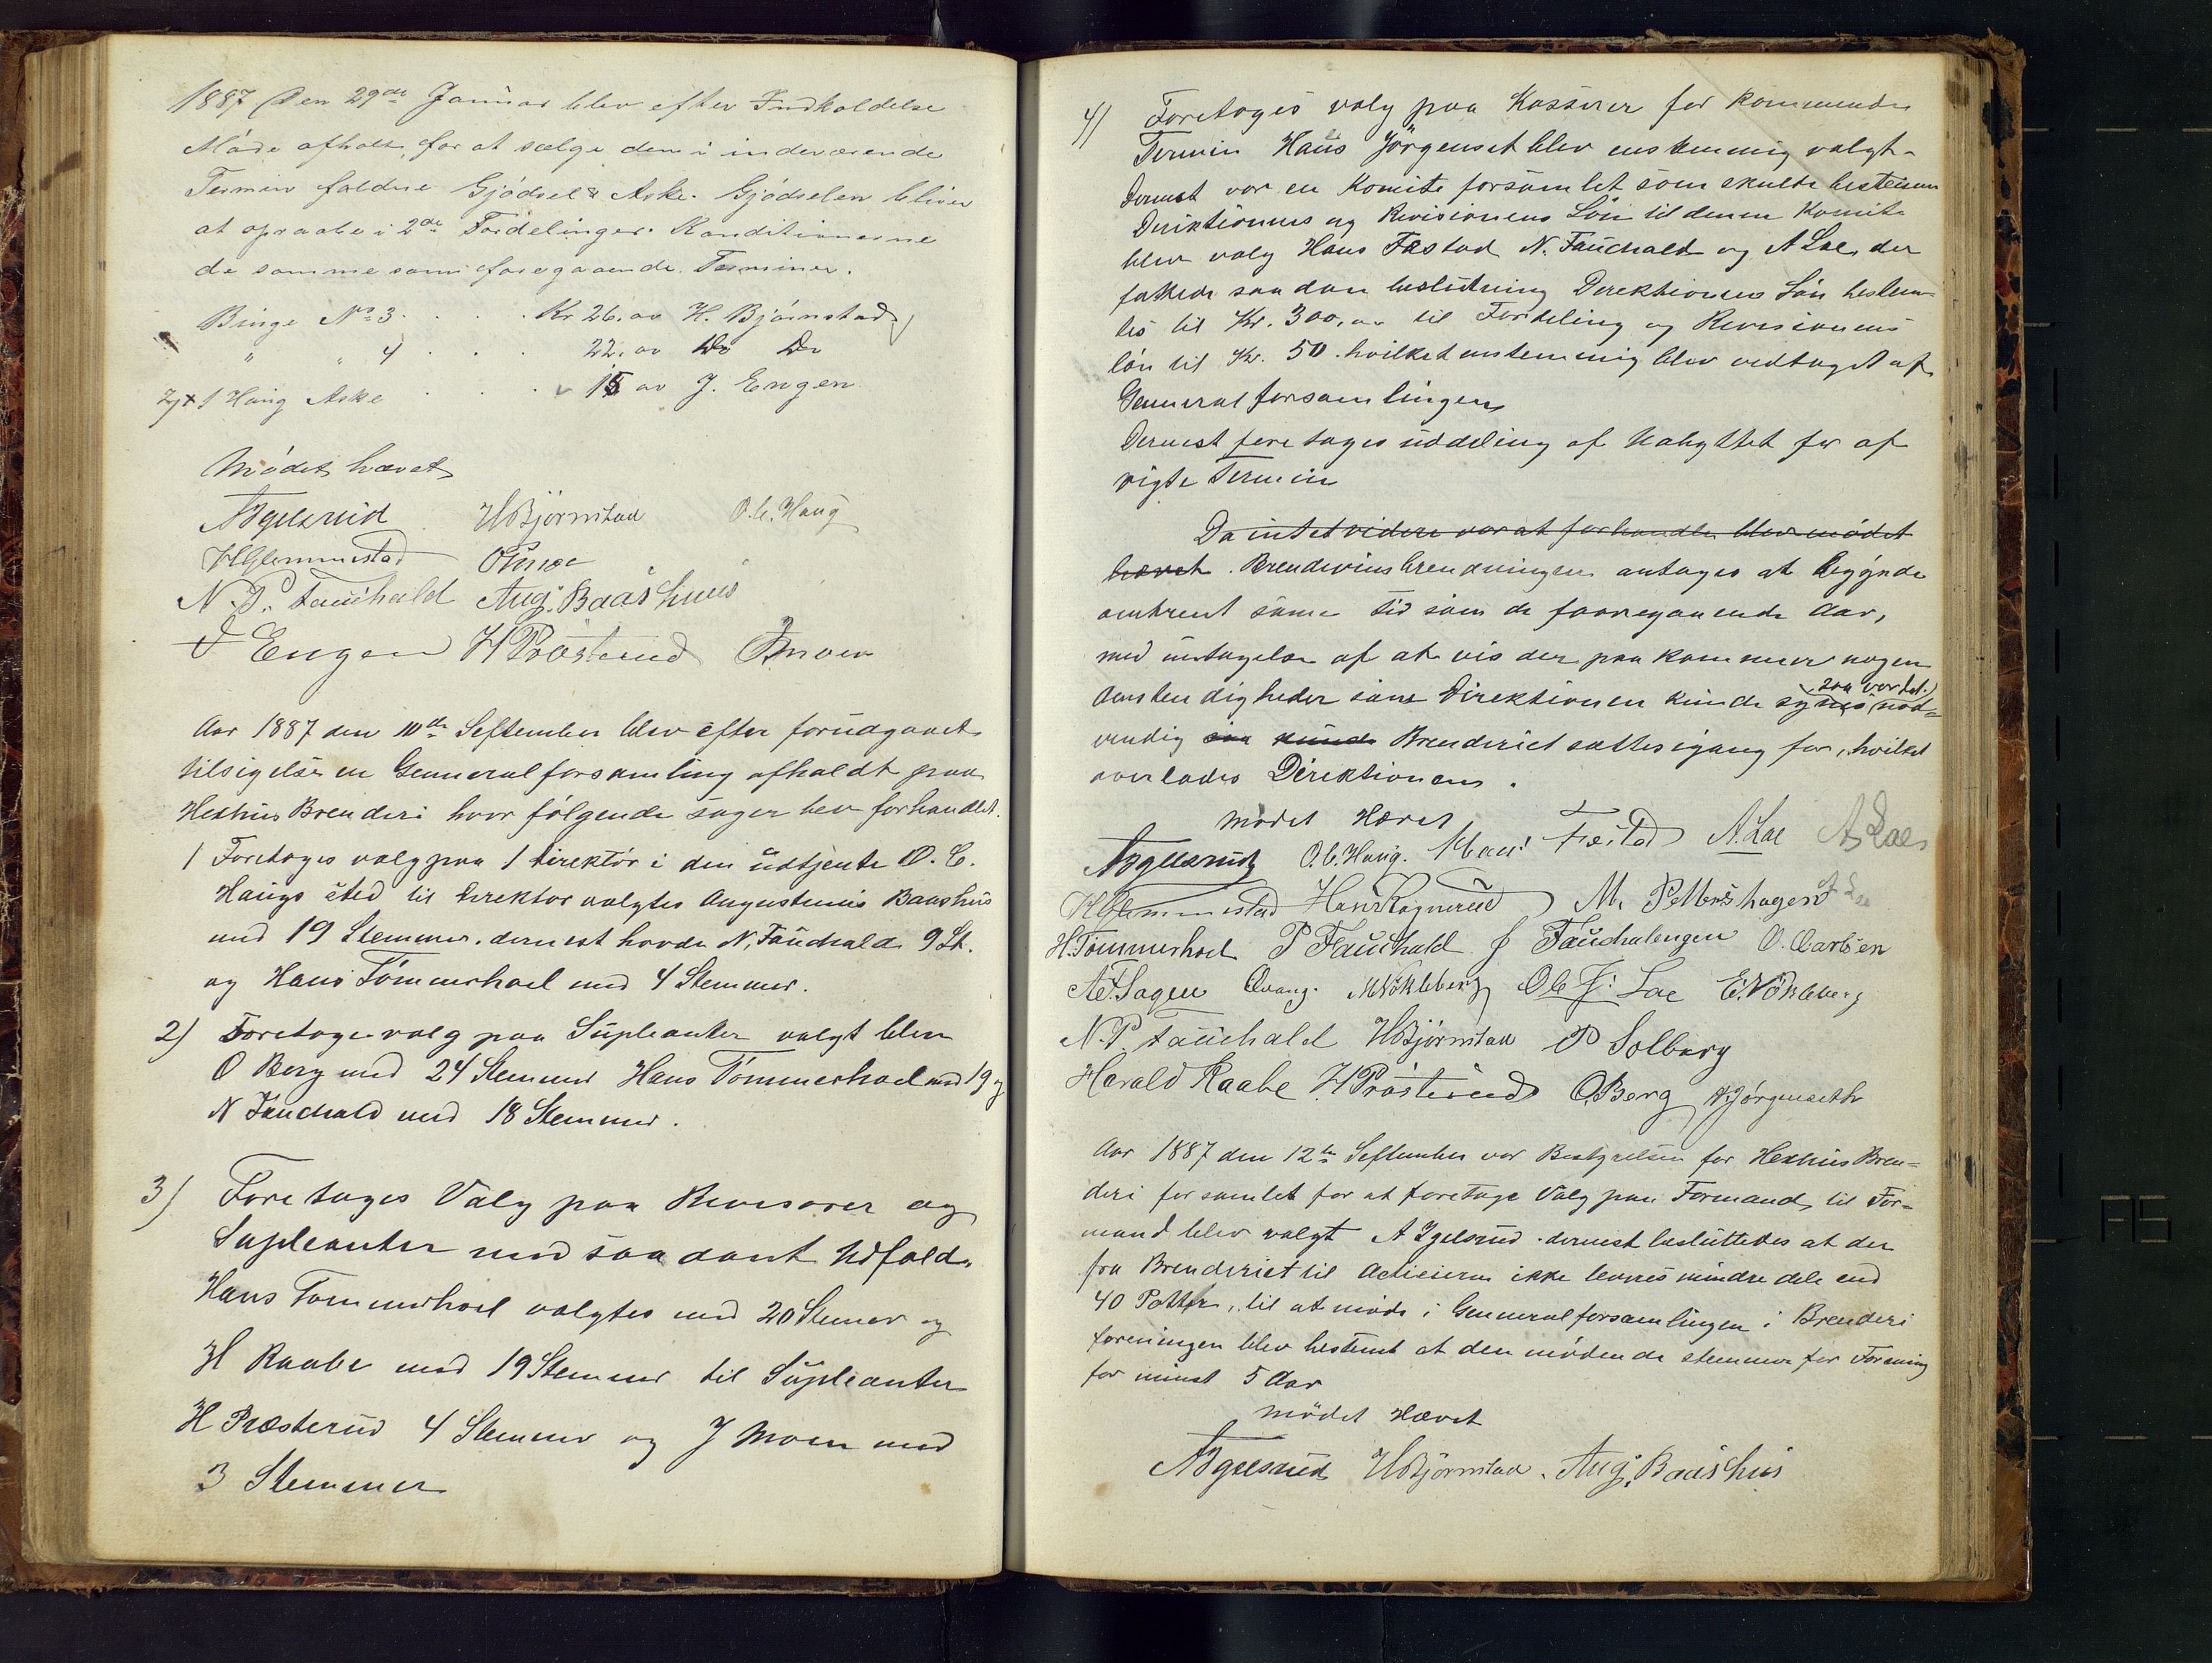 1887 Den 29de Januar blev efter Indkaldelse
Möde afholt, for at sælge dem i indeværende
Termin faldne Gjödsel & Aske. Gjödselen bliver
at opraabe i 2de Fordelinger. Konditionerne
de samme som foregaaende Terminer.
Binge No 3 . . . . Kr 26. av H. Björnstad
" " 4 . . . 22. av Do Do
1 Haug Aske . . . 15 av J. Engen
Mödet hævet
A Igelsrud H Björnstad O.C. Haug
H Glemmestad
N.P. Fauchald Aug. Baashuus
J Engen H Præsterud J Moen
Aar 1887 den 10de September blev efter forudgaaet
tilsigelse en Generalforsamling afholdt paa
Hexhus Brenderi hvor fölgende sager blev forhandlet.
1 Foretoges valg paa 1 direktör i den udtjente O. C.
Haugs sted til direktör valgtes Augustinus Baashus
med 19 Stemmer. dernest havde N. Fauchald 9 St.
og Hans Tömmerhoel med 4 Stemmer.
2) Foretoges valg paa Supleanter valgt blev
O Berg med 24 Stemmer Hans Tömmerhoel med 19 og
N Fauchald med 18 Stemmer.
3) Foretoges Valg paa Revisorer og
Supleanter med saadant Udfald.
Hans Tömmerhoel valgtes med 20 Stemer og
H Raabe med 19 Stemmer til Supleanter
H Præsterud 4 Stemmer og J Moen med
3 Stemmer
4) Foretoges valg paa Kasserer for kommende
Termin Hans Jörgenset blev enstemmig valgt.
Dernest var en Komite forsamlet som skulde bestemme
Direktionens og Revisionens Lön til denne Komite
blev valg Hans Fæstad N. Fauchald og A Lae, der
fattede saadan beslutning Direktionens Lön bestem-
tes til Kr. 300,00 til Fordeling og Revisionens
lön til Kr. 50. hvilket enstemmig blev vedtaget af
Generalforsamlingen
Dernest foretoges uddeling af Udbyttet for af
vigte Termin
Da intet videre var at forhandle blev mödet
hævet. Brendevinsbrendningen antages at begynde
omkrent same tid som de foregaaende Aar,
med untagelse af at vis der paa kommer nogen
Omstendigheder som Direktionen kunde synes (saa vordet.) nöd-
vendig saa kunde Brenderiet sattes igang för, hvilket
overlades Direktionen.
Mödet Hævet
A Igelsrud O.C. Haug. Hans Fæstad A. Lae A Lae
H Glemmestad Hans Rognerud M. Pettershagen
H. Tömmerhoel P Fauchald J Fauchalengen O. Carlsen
Ae. Sagen Qvang. M Nökleberg Ole J: Lae E. Nökleberg
N.P. Fauchald H Björnstad P Solberg
Harald Raabe H Præsterud O. Berg H Jörgenseth
Aar 1887 den 12te September var Bestyrelsen for Hexhus Bren-
deri forsamlet for at foretage Valg paa Formand, til For-
mand blev valgt A Igelsrud. dernest besluttedes at der
fra Brenderiet til Actieierne ikke leveres mindre dele end
40 Potter, til at möde i Generalforsamlingen i Brenderi
foreningen blev bestemt at den mödende stemmer for Forening
for minst 5 Aar
Mödet Hævet
A Igelsrud H Björnstad. Aug. Baashus